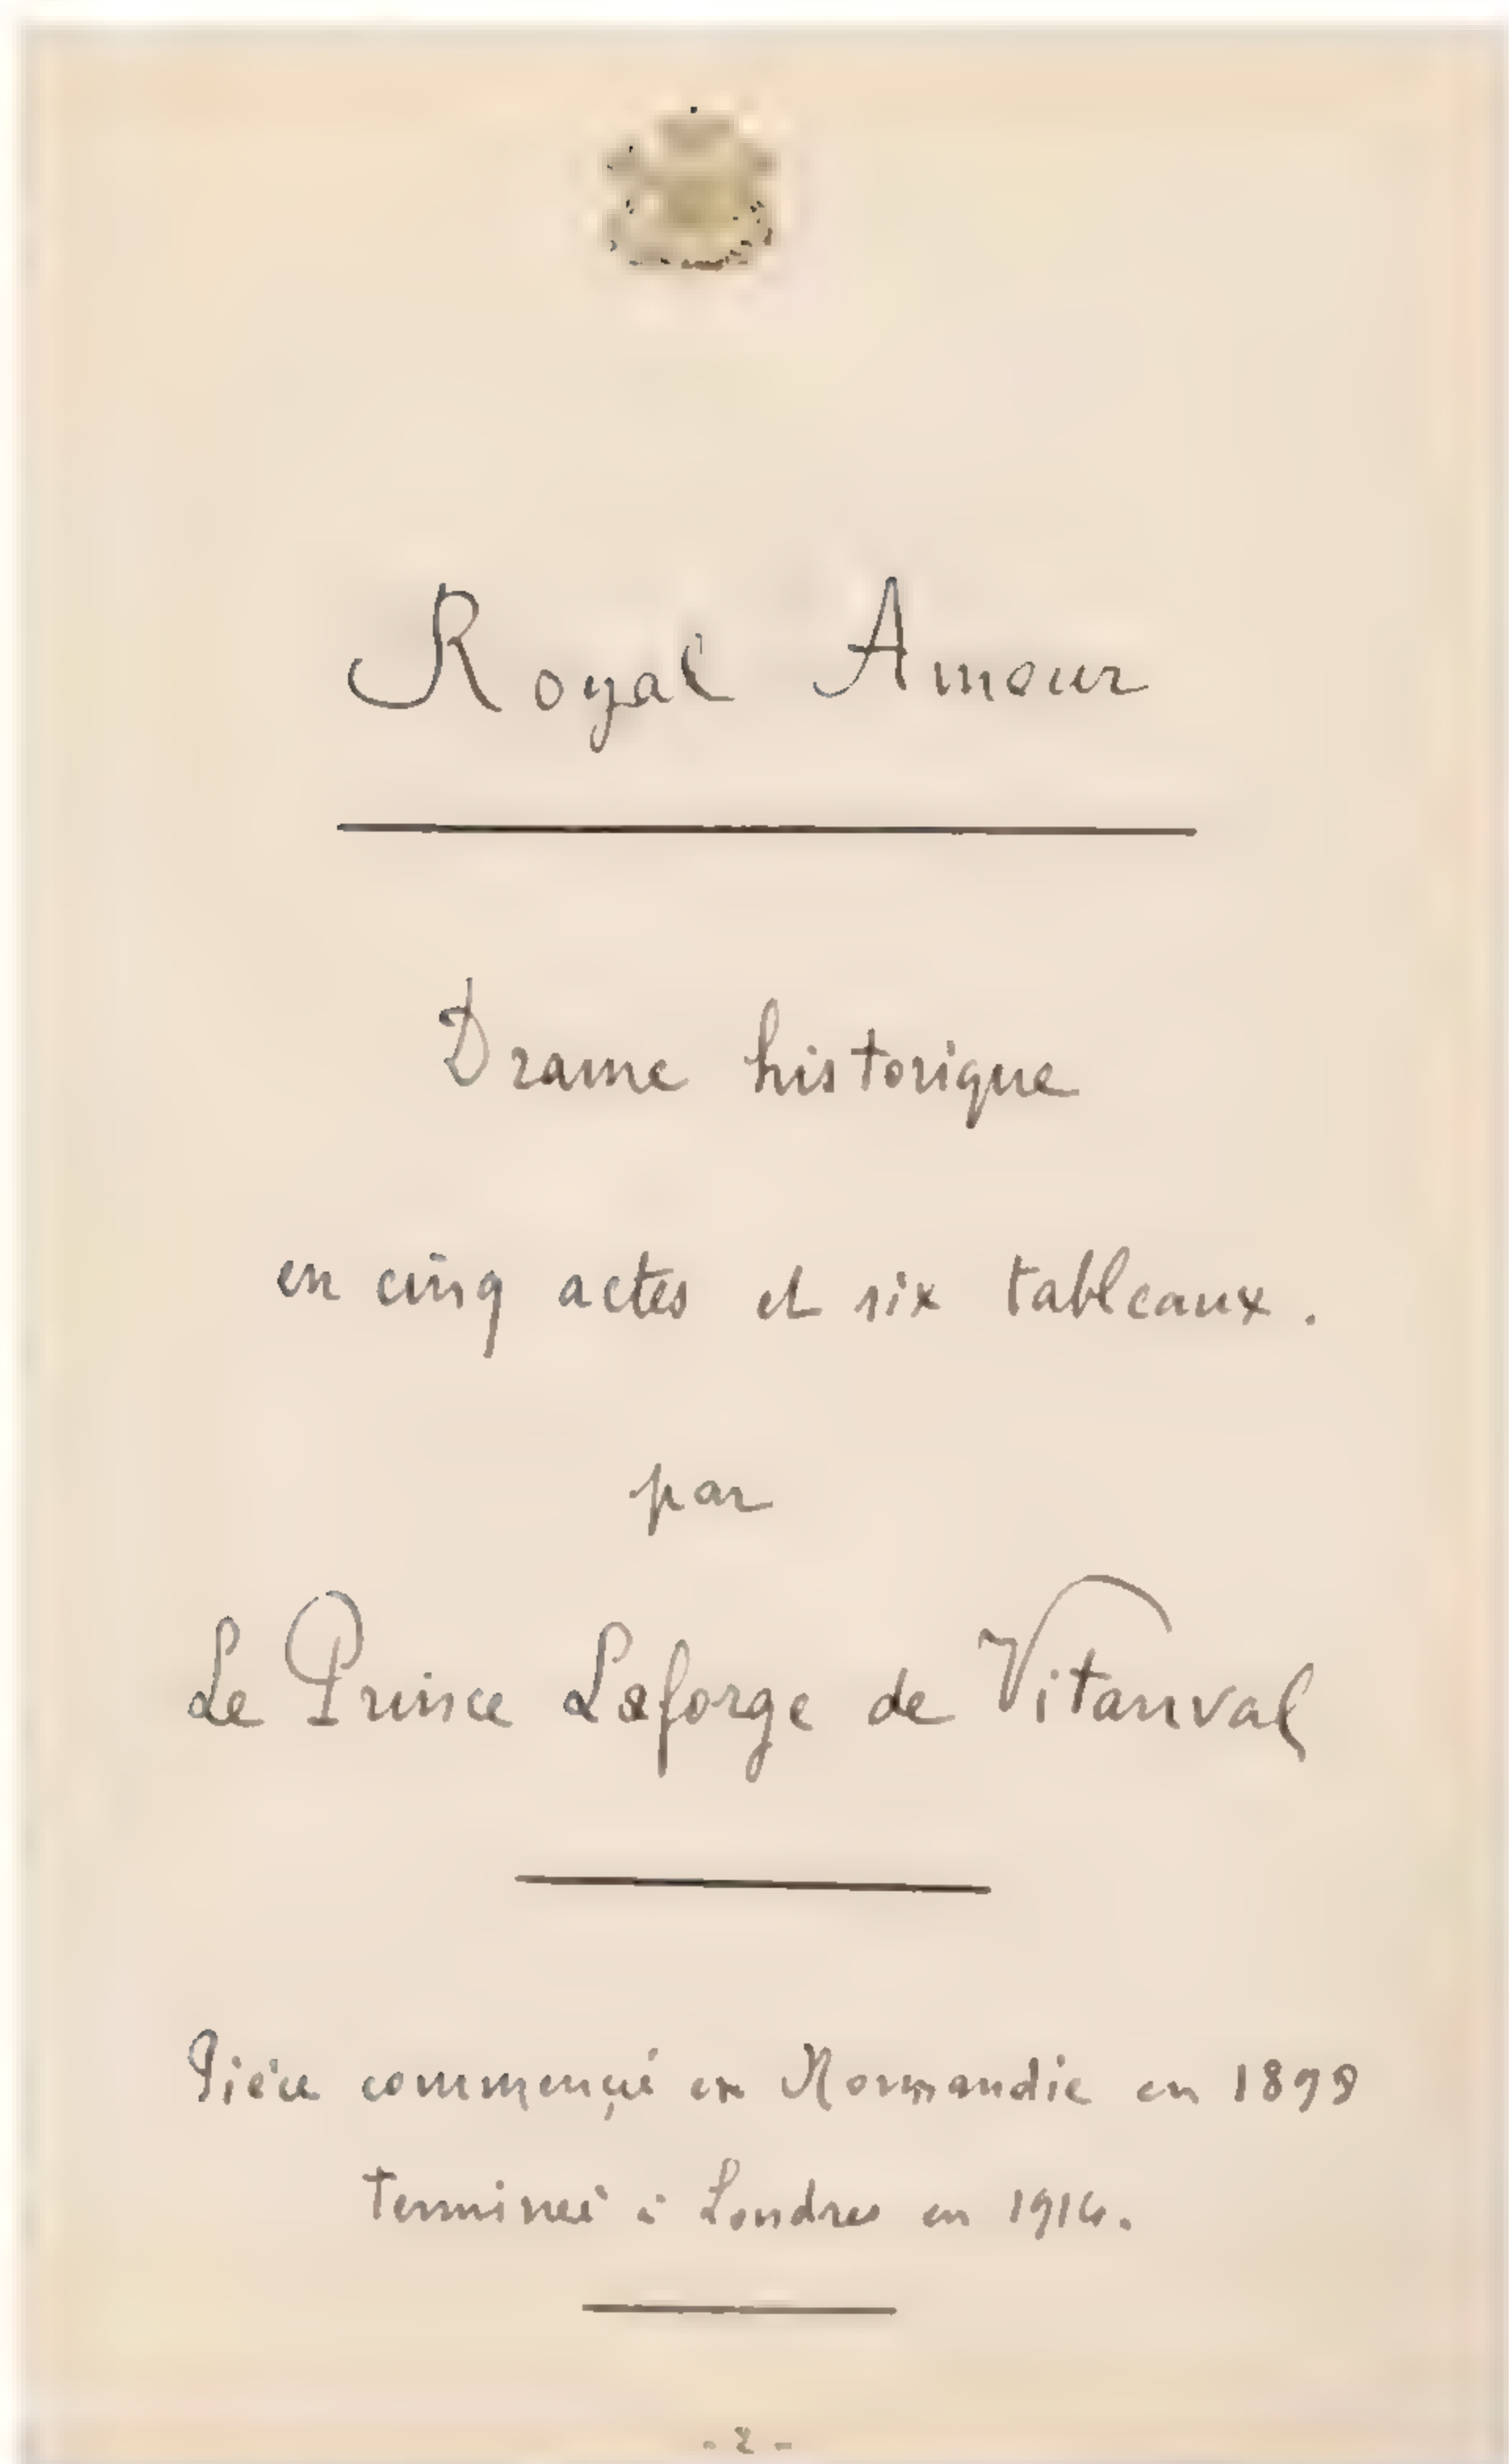 Royal Amour
Drame historique
en cinq actes et six tableaux.
par
Le Prince Laforge de Vitanval
Pièce commençée en Normandie en
terminée à Londres en
- 2 -